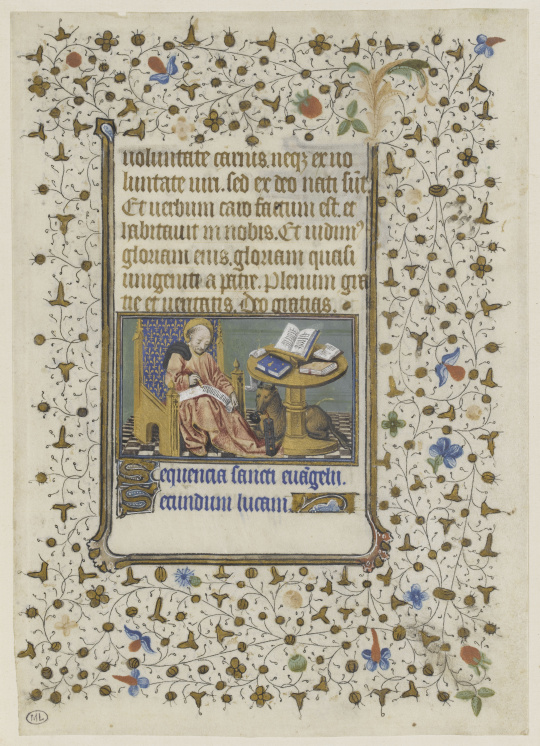 uoluntate carnis. neqz ex uo
luntate uiri. sed ex deo nati sūt.
Et uerbum caro factum est. et
habitauit in nobis. Et uidim⁹
gloriam eius. gloriam quasi
unigeniti a patre. Plenum gra
tie et ueritatis. Deo gratias.
Sequencia sancti euāgelii.
Secundum lucam.
ML